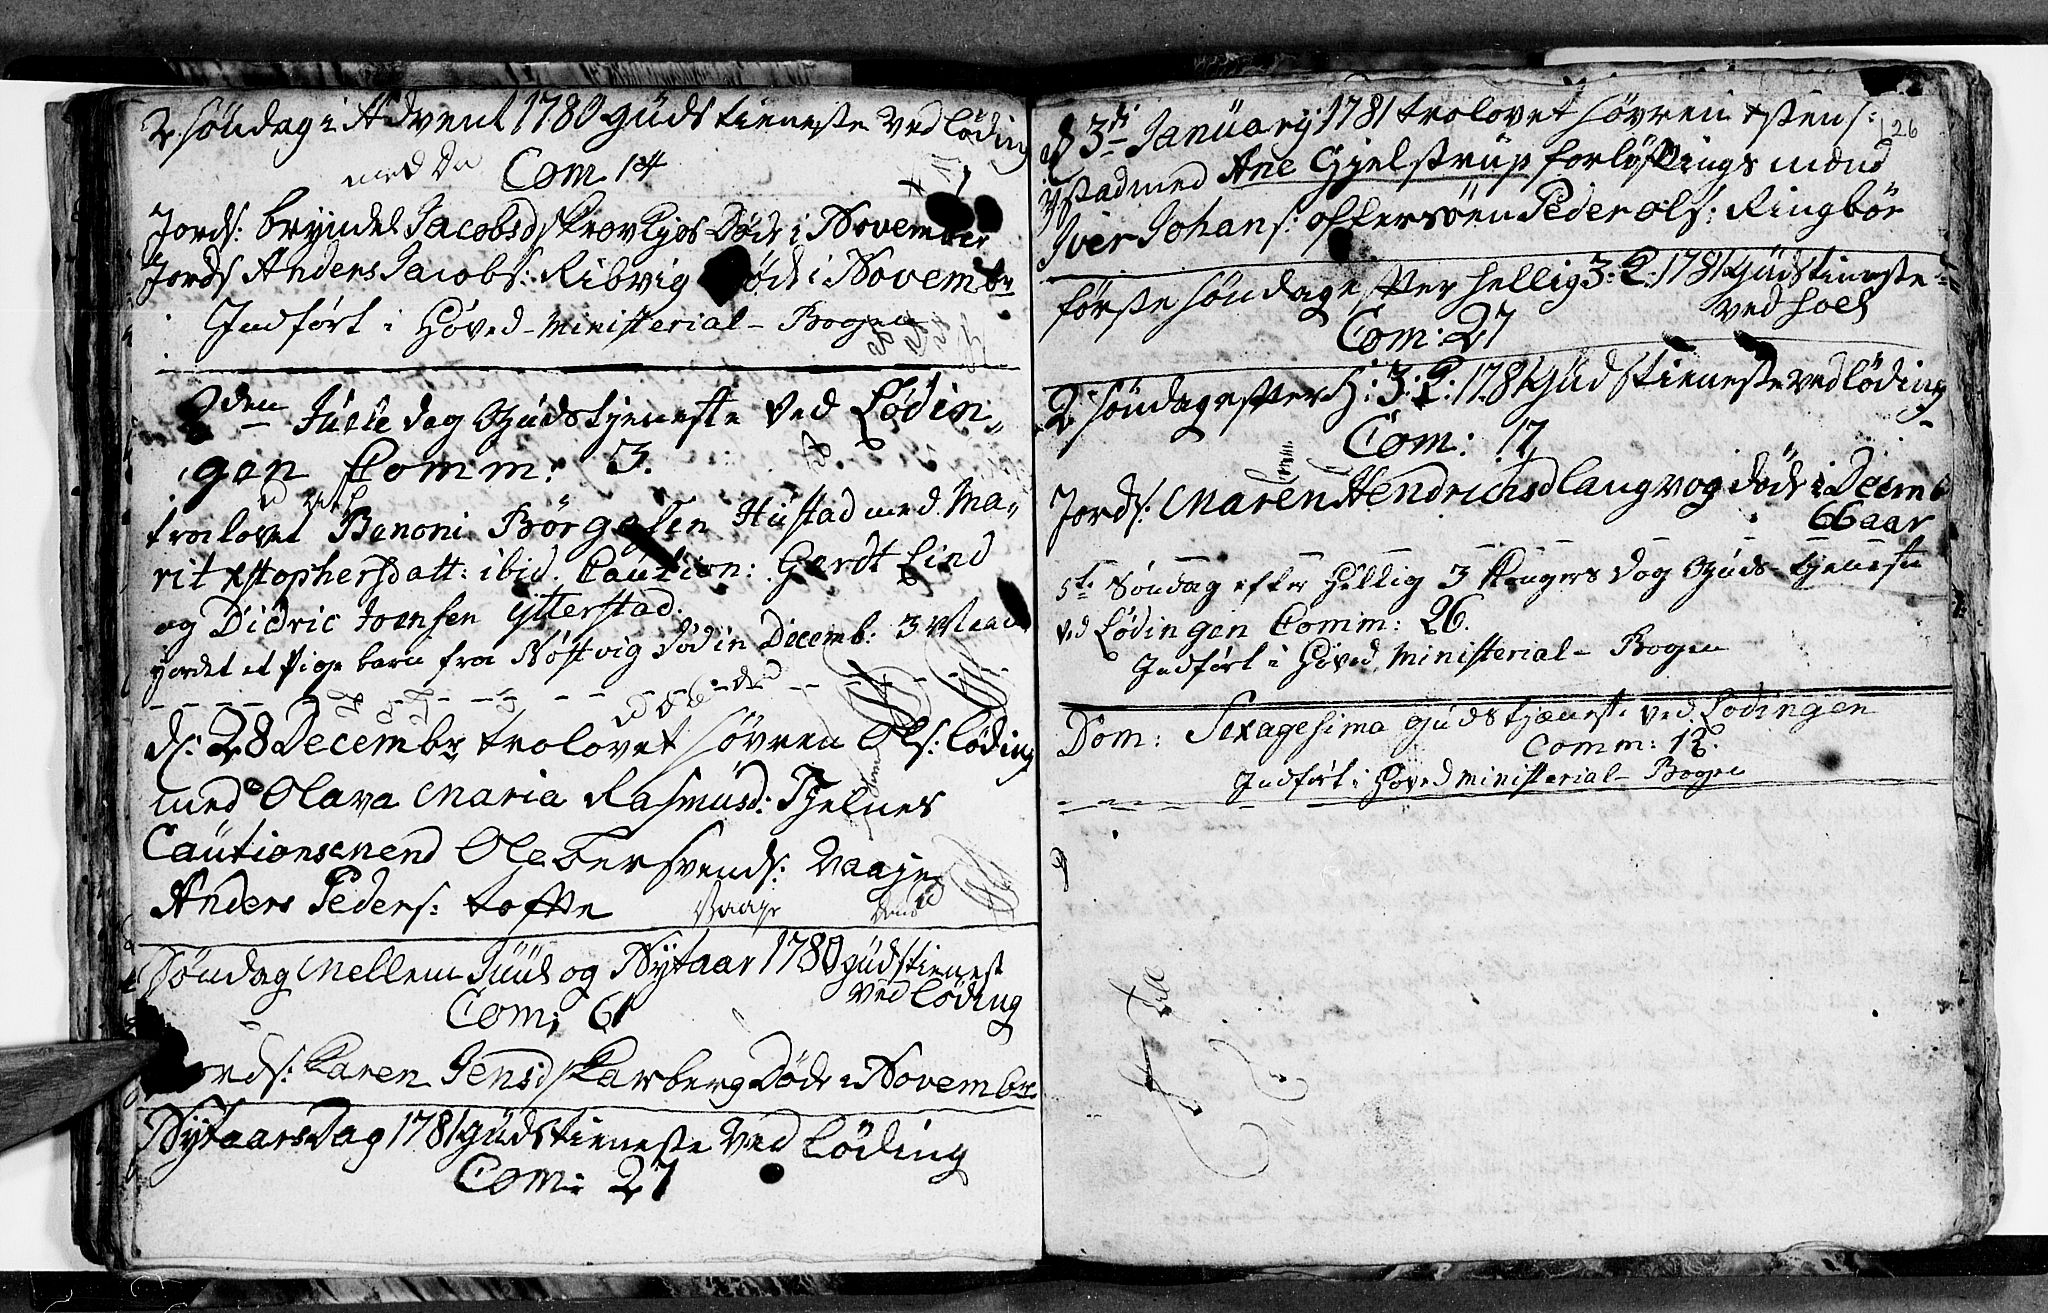 2 Søndag i Advent 1780 Gudstieneste ved Løding
med Du
Com 14
Jords: Bryndel Jacobsd Skrovkjos Døde i November
Jords Anders Jacobs: Ribvig Døde i Novembr
Indført i Hoved-Ministerial-Bogen
2den Juule dag Gudstjeneste ved Lødin-
gen Comm: 3.
trolovet Benoni Børgesen Hustad med Ma-
rit Xstophersdatt: ibid. Caution: Gerdt Lind
og Didric Joensen Ytterstad.
jordet et Pige barn fra Nøstvig død in Decemb: 3
d: 28 Decembr trolovet Søvren Ols: Løding
med Olava Maria Rasmusd: Tjelnes
Cautionsmend Ole Bersvends: Vaaje
Anders Peders: Tofte
Vaaje
Søndag Mellem Juul og Nytaar 1780 Gudstienest
ved Løding
Com: 61
Jords: Karen Jensd Skarberg Døde i Novembr
Nytaarsdag 1781 Gudstieneste ved Løding
Com: 27
126
d 3di January: 1781 trolovet Søvren Xstens:
Ystad med Ane Gjelstrup forløftnings mænd
Iver Johans: Offersøen Peder Ols: Ringbør
første Søndag efter hellig 3: K: 1781 Gudstieneste
ved Hoel
Com: 27
2 Søndag efter H: 3: K: 1781 Gudstieneste ved Løding
Com: 17
Jords: Maren Hendrichsd Laugvog døde i Decemb
66 aar
5te Søndag efter Hellig 3 Kongers dag Guds-tjeneste
ved Lødingen Comm: 26.
Indført i Hoved Ministerial-Bogen
Dom: Sexagesima Gudstjænest: ved Lødingen
Comm: 12.
Indført i Hoved Ministerial-Bogen